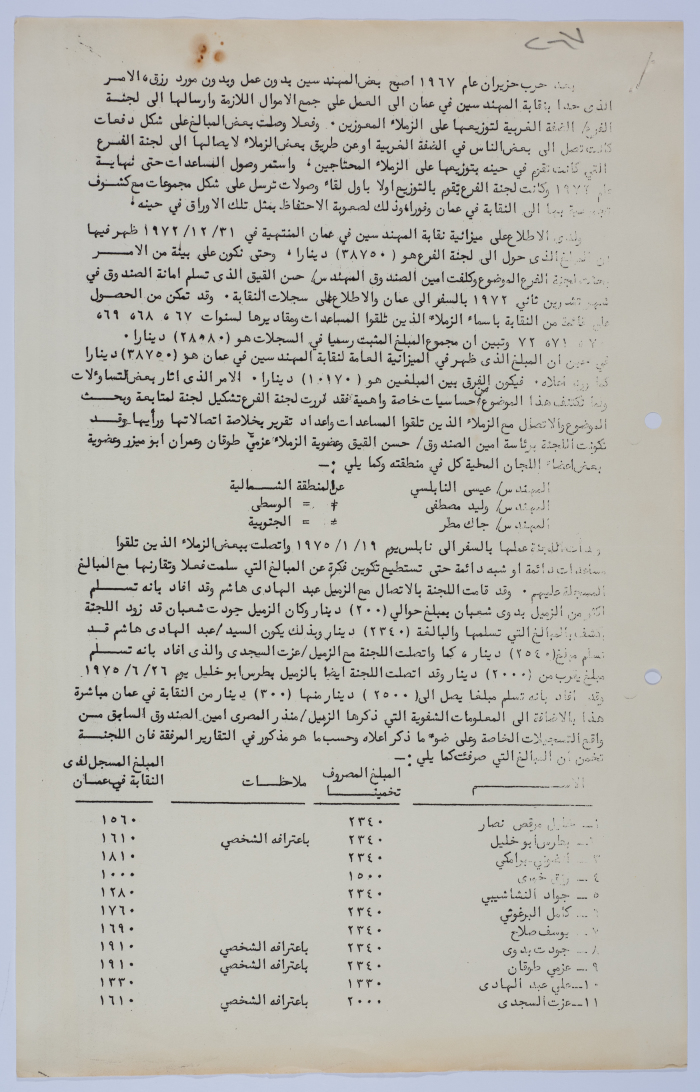 ٢٦٧
بعد حرب حزيران عام ١٩٦٧ اصبح بعض المهندسين بدون عمل وبدون مورد رزق، الامر
الذى حدا بنقابة المهندسين في عمان الى العمل على جمع الاموال اللازمة وارسالها الى لجنة
الفرع/ الضفة الغربية لتوزيعها على الزملاء المعوزين. وفعلا وصلت بعض المبالغ على شكل دفعات
كانت تصل الى بعض الناس في الضفة الغربية او عن طريق بعض الزملاء لايصالها الى لجنة الفرع
التي كانت تقوم في حينه بتوزيعها على الزملاء المحتاجين، واستمر وصول المساعدات حتى نهاية
عام وكانت لجنة الفرع تقوم بالتوزيع اولا باول لقاء وصولات ترسل على شكل مجموعات مع كشوف
بها الى النقابة في عمان وفورا وذلك لصعوبة الاحتفاظ بمثل تلك الاوراق في حينه،
ولدى الاطلاع على ميزانية نقابة المهندسين في عمان المنتهية في ١٩٧٢/١٢/٣١ ظهر فيها
ان المبلغ الذى حول الى لجنة الفرع هو (٣٨٧٥٠) دينارا، وحتى نكون على بينة من الامر
بحثت لجنة الفرع الموضوع وكلفت امين الصندوق المهندس/ حسن القيق الذى تسلم امانة الصندوق في
شهر تشرين ثاني ١٩٧٢ بالسفر الى عمان والاطلاع على سجلات النقابة. وقد تمكن من الحصول
على قائمة من النقابة باسماء الزملاء الذين تلقوا المساعدات ومقاديرها لسنوات ٦٧، ٦٨، ٦٩،
٧٠، ٧١، ٧٢ وتبين ان مجموع المبلغ المثبت رسميا في السجلات هو (٢٨٥٨٠) دينارا.
في حين ان المبلغ الذى ظهر في الميزانية العامة لنقابة المهندسين في عمان هو (٣٨٧٥٠) دينارا
كما ورد اعلاه. فيكون الفرق بين المبلغين هو (١٠١٧٠) دينارا. الامر الذى اثار بعض التساؤلات
ولما تكتنف هذا الموضوع من حساسيات خاصة واهمية فقد قررت لجنة الفرع تشكيل لجنة لمتابعة وبحث
الموضوع والاتصال مع الزملاء الذين تلقوا المساعدات واعداد تقرير بخلاصة اتصالاتها ورأيها وقد
تكونت اللجنة برئاسة امين الصندوق/ حسن القيق وعضوية الزملاء عزمي طوقان وعمران ابو ميزر وعضوية
بعض اعضاء اللجان المحلية كل في منطقته وكما يلي :ــ
المهندس/ عيسى النابلسي عن المنطقة الشمالية
المهندس/ وليد مصطفى = = الوسطى
المهندس/ جاك مطر = = الجنوبية
بدأت اللجنة عملها بالسفر الى نابلس يوم ١٩٧٥/١/١٩ واتصلت ببعض الزملاء الذين تلقوا
مساعدات دائمة او شبه دائمة حتى تستطيع تكوين فكرة عن المبالغ التي سلمت فعلا وتقارنها مع المبالغ
المسجلة عليهم. وقد قامت اللجنة بالاتصال مع الزميل عبد الهادى هاشم وقد افاد بانه تسلم
اكثر من الزميل بدوى شعبان بمبلغ حوالي (٢٠٠) دينار وكان الزميل جودت شعبان قد زود اللجنة
بكشف بالمبالغ التي تسلمها والبالغة (٢٣٤٠) دينار وبذلك يكون السيد/ عبد الهادى هاشم قد
تسلم مبلغ (٢٥٤٠) دينار، كما واتصلت اللجنة مع الزميل/ عزت السجدى والذى افاد بانه تسلم
مبلغ يقرب من (٢٠٠٠) دينار وقد اتصلت اللجنة ايضا بالزميل بطرس ابو خليل يوم ١٩٧٥/٦/٢٦
وقد افاد بانه تسلم مبلغا يصل الى (٢٥٠٠) دينار منها (٣٠٠) دينار من النقابة في عمان مباشرة
هذا بالاضافة الى المعلومات الشفوية التي ذكرها الزميل/ منذر المصرى امين الصندوق السابق من
واقع التسجيلات الخاصة وعلى ضوء ما ذكر اعلاه وحسب ما هو مذكور في التقارير المرفقة فان اللجنة
تخمن ان المبالغ التي صرفت كما يلي :ــ
الاسم المبلغ المصروف تخمينا ملاحظات المبلغ المسجل لدى النقابة في عمان
١ــ مرقص نصار ٢٣٤٠ ١٥٦٠
٢ــ بطرس ابو خليل ٢٣٤٠ باعترافه الشخصي ١٦١٠
٣ــ برامكي ٢٣٤٠ ١٨١٠
٤ــ رزق خورى ١٥٠٠ ١٠٠٠
٥ــ جواد النشاشيبي ٢٣٤٠ ١٢٨٠
٦ــ كامل البرغوثي ٢٣٤٠ ١٧٦٠
٧ــ يوسف صلاح ٢٣٤٠ ١٦٩٠
٨ــ جودت بدوى ٢٣٤٠ باعترافه الشخصي ١٩١٠
٩ــ عزمي طوقان ٢٣٤٠ باعترافه الشخصي ١٩١٠
١٠ــ علي عبد الهادى ١٣٣٠ ١٣٣٠
١١ــ عزت السجدى ٢٠٠٠ باعترافه الشخصي ١٦١٠